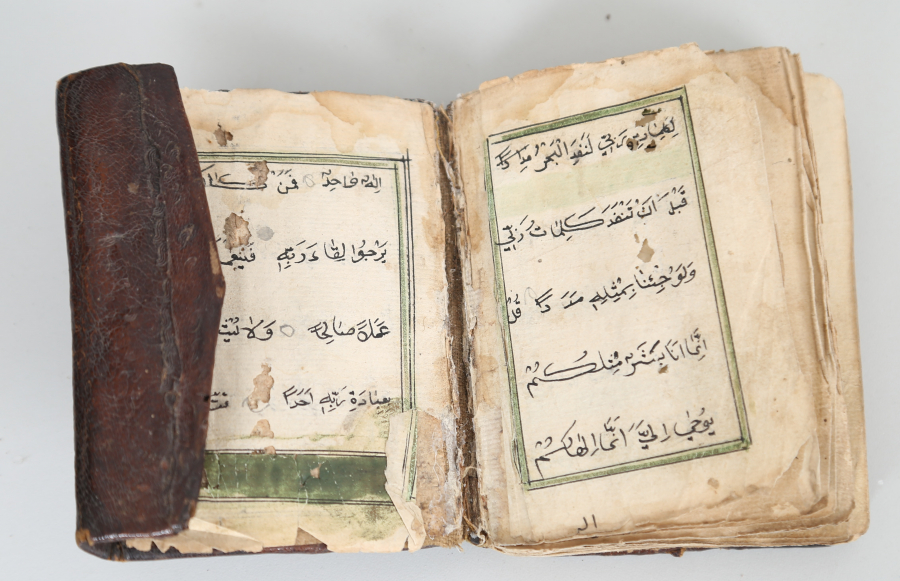 لِكَلِمَاتِ رَبِّي لَنَفِدَ الْبَحْرُ مِدَادًا
قَبْلَ اَنْ تَنْفَدَ كَلِمَاتُ رَبِّي
وَلَوْ جِئْنَا بِمِثْلِهِ مَدَدًا قُلْ
اِنَّمَا اَنَا بَشَرٌ مِثْلُكُمْ
يُوحَى اِلَيَّ اَنَّمَا اِلٰهُكُمْ
ال
اِلٰهٌ وَاحِدٌ فَمَنْ كَانَ
يَرْجُوا لِقَاءَ رَبِّهِ
عَمَلًا صَالِحًا وَلَا
بِعِبَادَةِ رَبِّهِ اَحَدًا